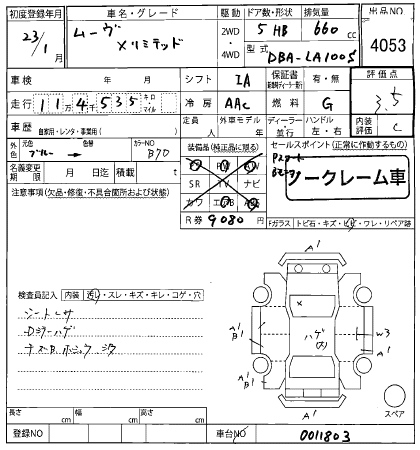 初度登録年月 車名・グレード 駆動 ドア数・形状 排気量 出品NO
23/1月 ムーヴ Xリミテッド 2WD・4WD 5 HB 660 cc 4053
型式 DBA-LA100S
車検 年 月 シフト IA 保証書 有・無 評価点
走行 11万4千535 キロ・マイル 冷房 AAC 燃料 G 3.5
車歴 自家用・レンタ・事業用( ) 定員 人 外車モデル 年 ディーラー 並行 ハンドル 左・右 内装評価 C
外色 元色 ブルー → 色替 カラーNO B70
装備品(純正品に限る) セールスポイント(正常に作動するもの)
名義変更期限 月 日迄 積載 t
PS PW
SR TV ナビ
カワ エアB
ノークレーム車
注意事項(欠品・修復・不具合箇所および状態)
R券 9080 円
Fガラス トビ石・キズ・ヒビ・ワレ・リペア跡
検査員記入 内装 汚れ・スレ・キズ・キレ・コゲ・穴
A'
A' B'
X
ハゲ
W3
A'
A' B'
A'
A'
スペア
長さ cm 幅 cm 高さ cm
登録NO 車台NO 0011803